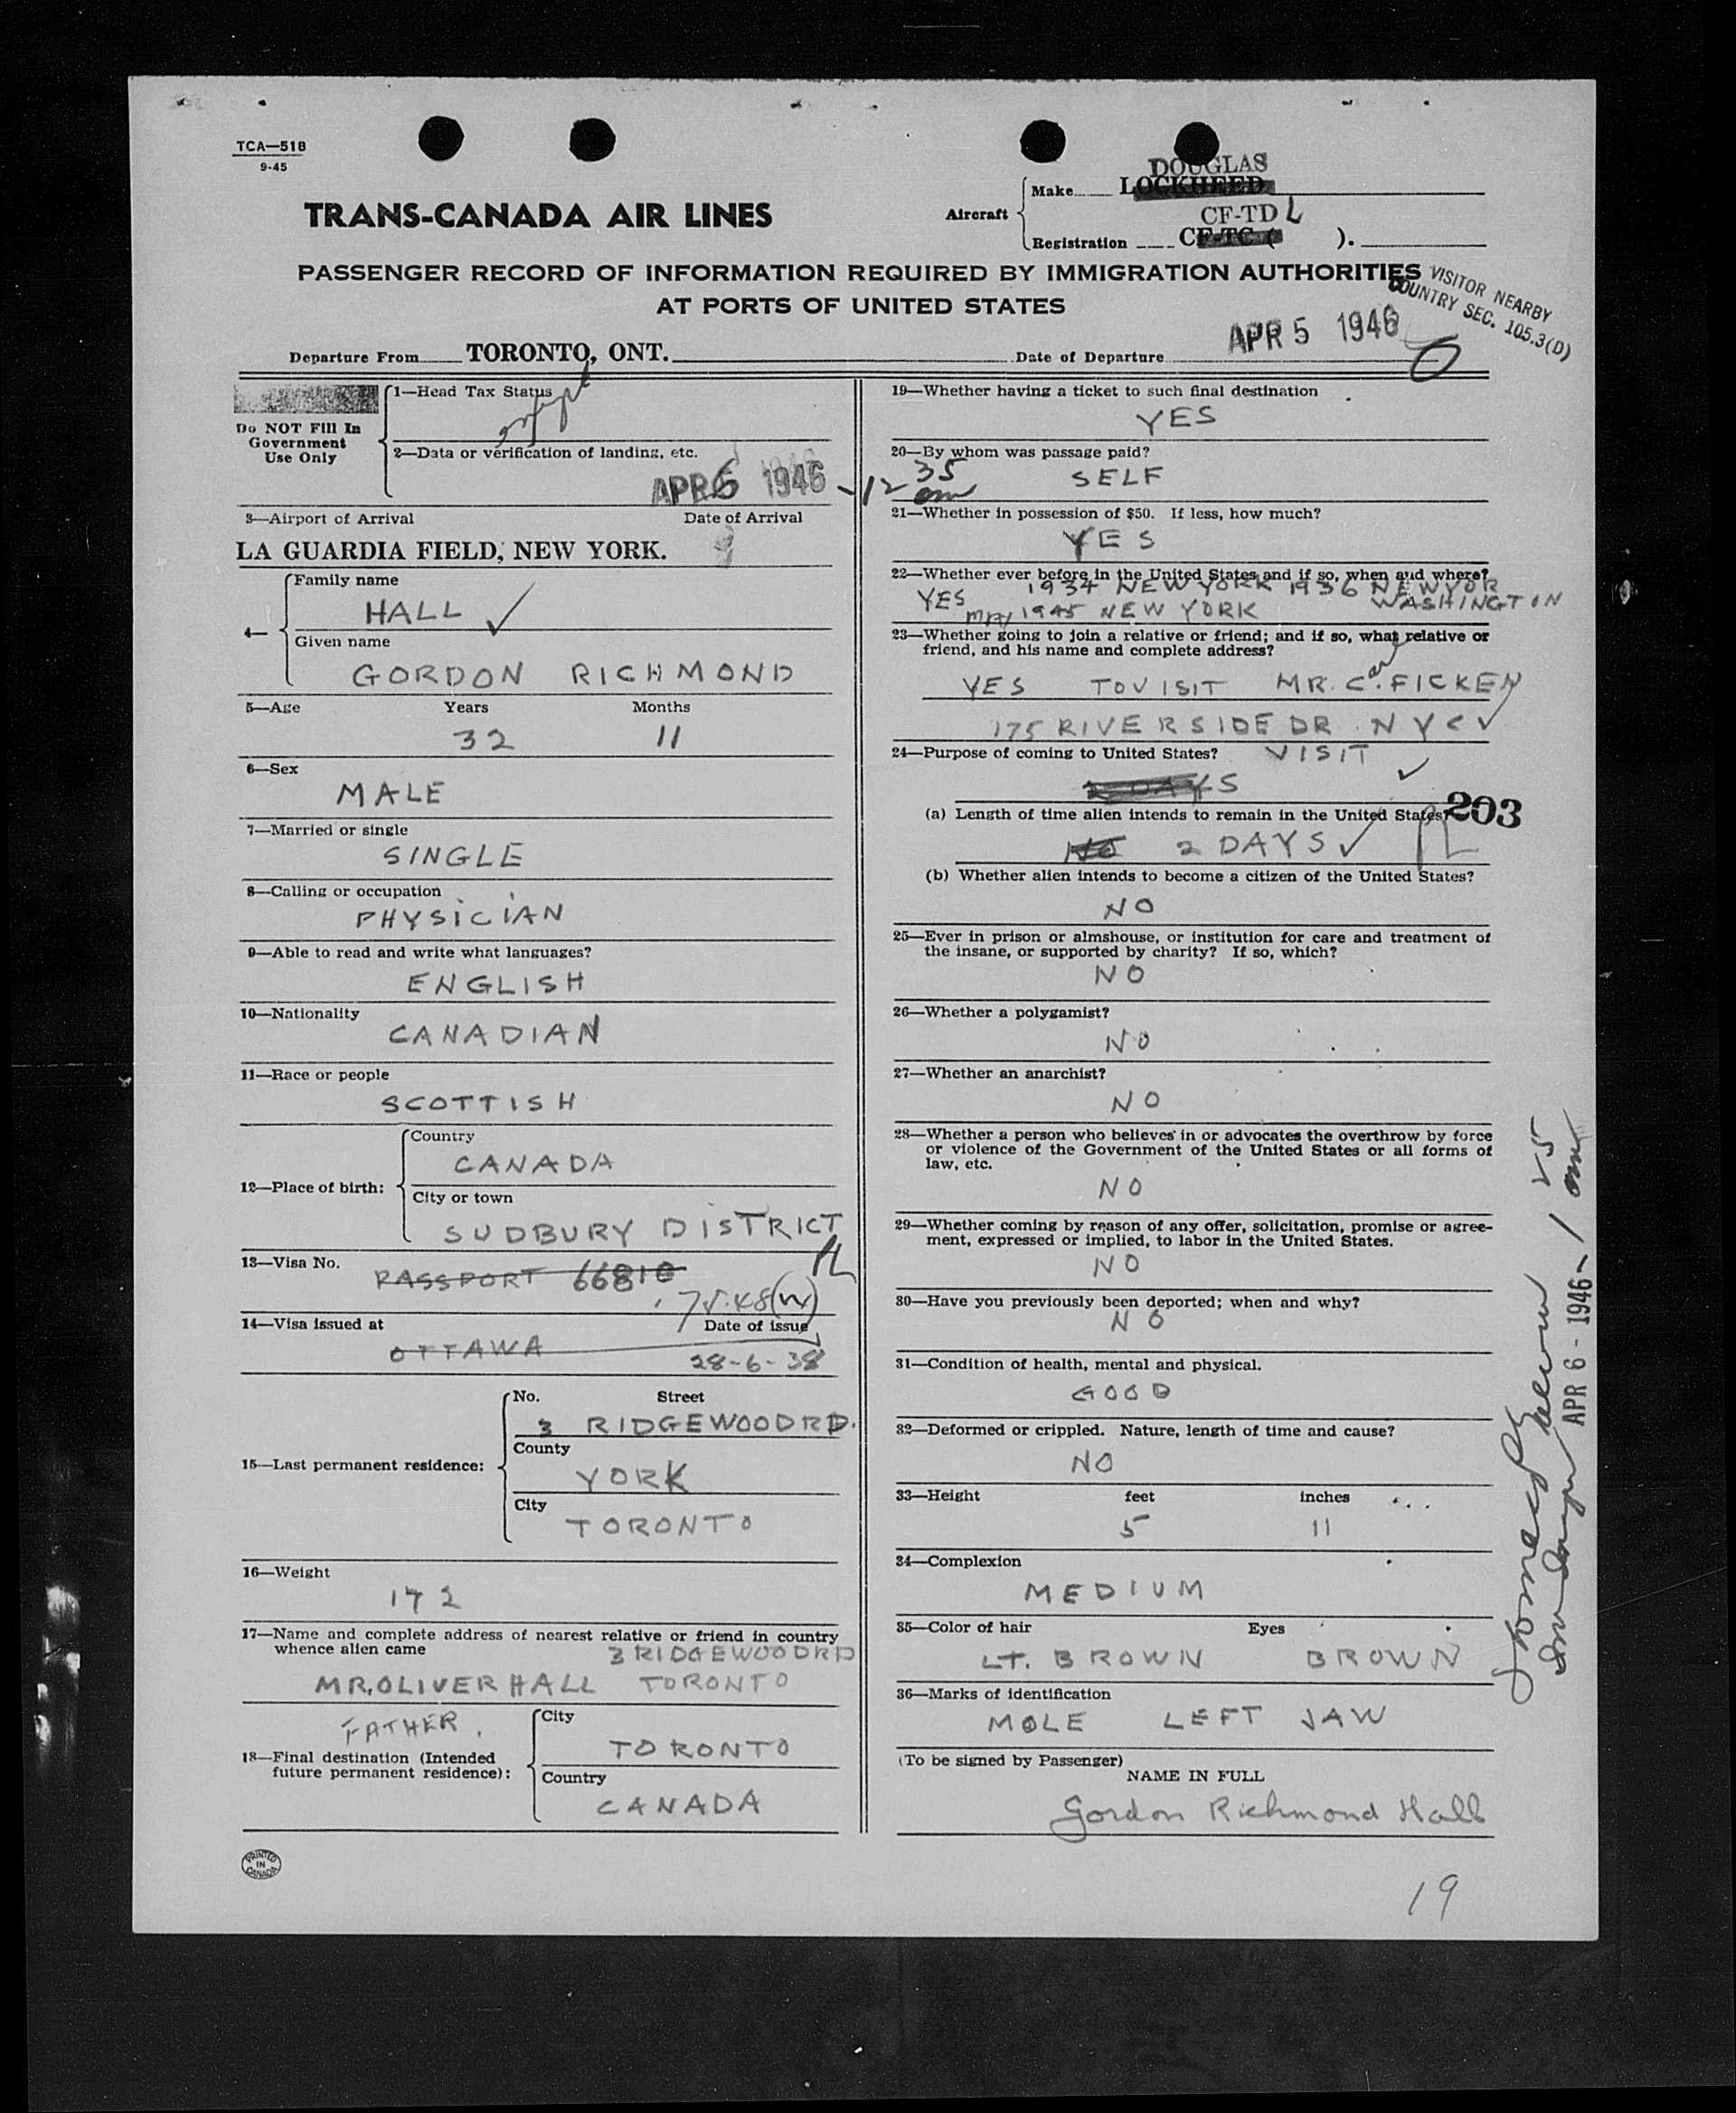 TCA—518
9-45
TRANS-CANADA AIR LINES
Aircraft
Make
DOUGLAS
LOCKHEED
Registration
CF-TD L
CF-TC ( ).
PASSENGER RECORD OF INFORMATION REQUIRED BY IMMIGRATION AUTHORITIES
AT PORTS OF UNITED STATES
VISITOR NEARBY
COUNTRY SEC. 105.3(D)
Departure From TORONTO, ONT.
Date of Departure APR 5 1946
Do NOT Fill In
Government
Use Only
1—Head Tax Status
2—Data or verification of landing, etc.
APR 6 1946 - 12 35 am
3—Airport of Arrival Date of Arrival
LA GUARDIA FIELD, NEW YORK.
4—
Family name
HALL ✓
Given name
GORDON RICHMOND
5—Age Years Months
32 11
6—Sex
MALE
7—Married or single
SINGLE
8—Calling or occupation
PHYSICIAN
9—Able to read and write what languages?
ENGLISH
10—Nationality
CANADIAN
11—Race or people
SCOTTISH
12—Place of birth:
Country
CANADA
City or town
SUDBURY DISTRICT
13—Visa No.
PASSPORT 66810
14—Visa issued at Date of issue
OTTAWA 28-6-38
15—Last permanent residence:
No. Street
3 RIDGEWOOD RD.
County
YORK
City
TORONTO
16—Weight
172
17—Name and complete address of nearest relative or friend in country
whence alien came 3 RIDGEWOOD RD
MR. OLIVER HALL TORONTO
FATHER.
18—Final destination (Intended
future permanent residence):
City
TORONTO
Country
CANADA
PRINTED
IN
CANADA
19—Whether having a ticket to such final destination
YES
20—By whom was passage paid?
SELF
21—Whether in possession of $50. If less, how much?
YES
22—Whether ever before in the United States and if so, when and where?
YES 1934 NEW YORK 1936 NEW YOR
MAY 1945 NEW YORK WASHINGTON
23—Whether going to join a relative or friend; and if so, what relative or
friend, and his name and complete address?
YES TO VISIT MR. Carl FICKEN
175 RIVERSIDE DR. NYC ✓
24—Purpose of coming to United States? VISIT
2 DAYS ✓
(a) Length of time alien intends to remain in the United States?
203
NO 2 DAYS ✓
(b) Whether alien intends to become a citizen of the United States?
NO
25—Ever in prison or almshouse, or institution for care and treatment of
the insane, or supported by charity? If so, which?
NO
26—Whether a polygamist?
NO
27—Whether an anarchist?
NO
28—Whether a person who believes in or advocates the overthrow by force
or violence of the Government of the United States or all forms of
law, etc.
NO
29—Whether coming by reason of any offer, solicitation, promise or agree-
ment, expressed or implied, to labor in the United States.
NO
30—Have you previously been deported; when and why?
NO
31—Condition of health, mental and physical.
GOOD
32—Deformed or crippled. Nature, length of time and cause?
NO
33—Height feet inches
5 11
34—Complexion
MEDIUM
35—Color of hair Eyes
LT. BROWN BROWN
36—Marks of identification
MOLE LEFT JAW
(To be signed by Passenger)
NAME IN FULL
Gordon Richmond Hall
APR 6 - 1946 - 1 25 am
19